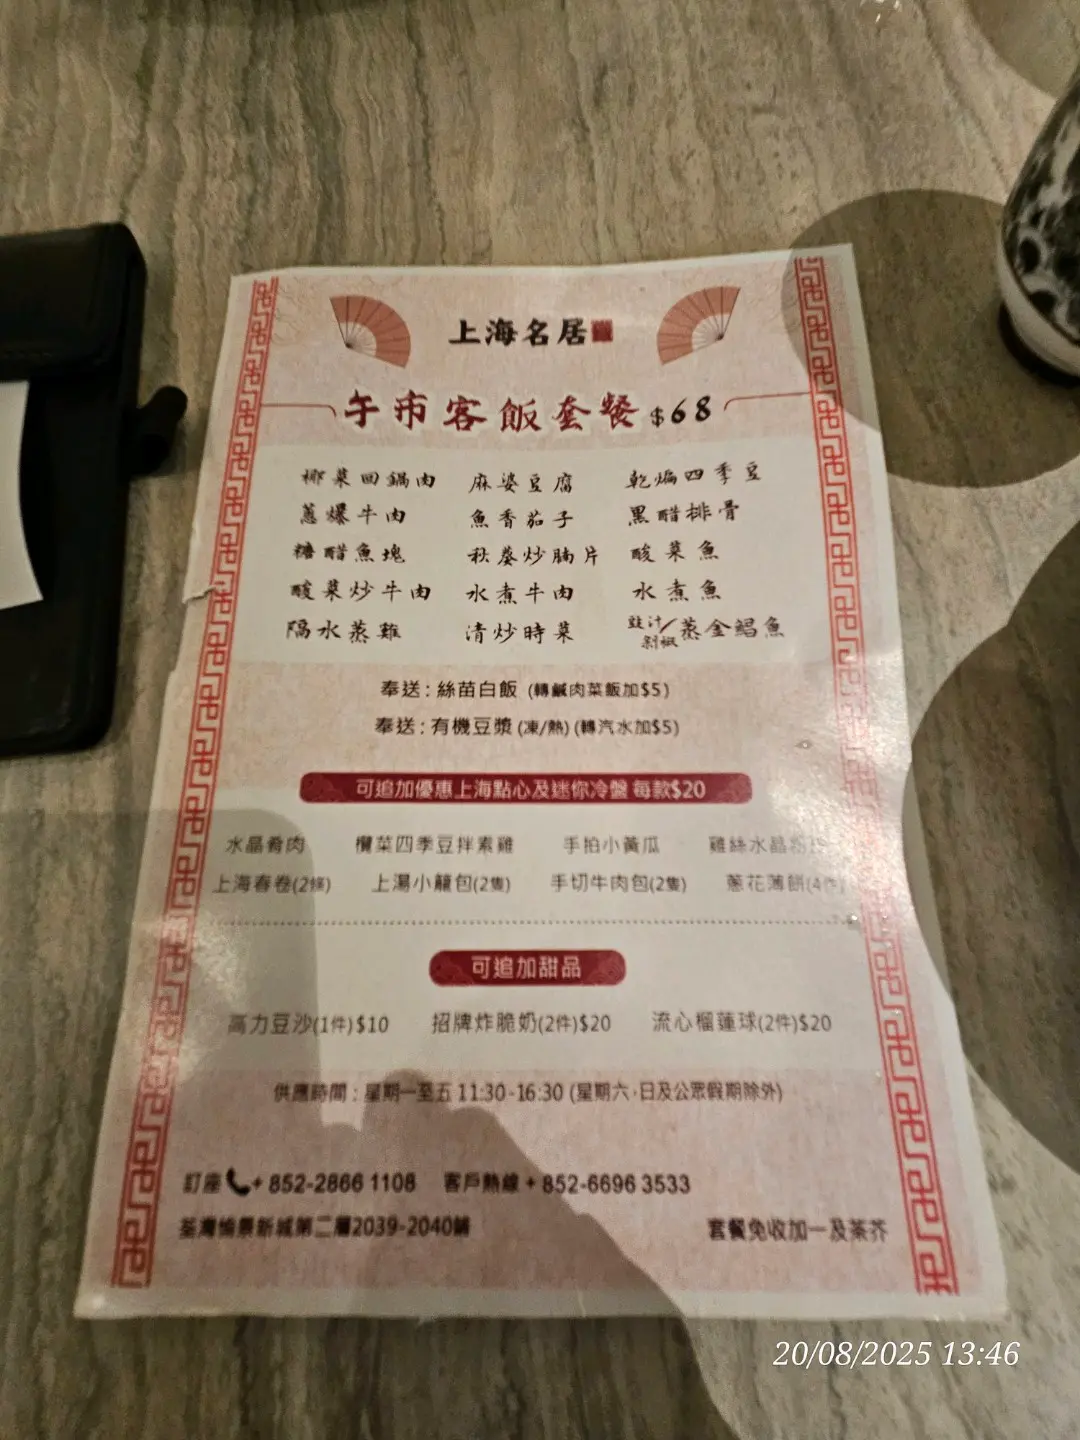 上海名居
午市客飯套餐 $68
椰菜回鍋肉 麻婆豆腐 乾煸四季豆
蔥爆牛肉 魚香茄子 黑醋排骨
糖醋魚塊 秋葵炒腩片 酸菜魚
酸菜炒牛肉 水煮牛肉 水煮魚
隔水蒸雞 清炒時菜 豉汁/剁椒蒸金鯧魚
奉送:絲苗白飯 (轉鹹肉菜飯加$5)
奉送:有機豆漿(凍/熱)(轉汽水加$5)
可追加優惠上海點心及迷你冷盤 每款$20
水晶肴肉 欖菜四季豆拌素雞 手拍小黃瓜 雞絲水晶粉皮
上海春卷(2條) 上湯小籠包(2隻) 手切牛肉包(2隻) 蔥花薄餅(4件)
可追加甜品
高力豆沙(1件)$10 招牌炸脆奶(2件)$20 流心榴蓮球(2件)$20
供應時間:星期一至五 11:30-16:30 (星期六,日及公眾假期除外)
訂座 + 852-2866 1108 客戶熱線 + 852-6696 3533
荃灣愉景新城第二層2039-2040舖 套餐免收加一及茶芥
20/08/2025 13:46